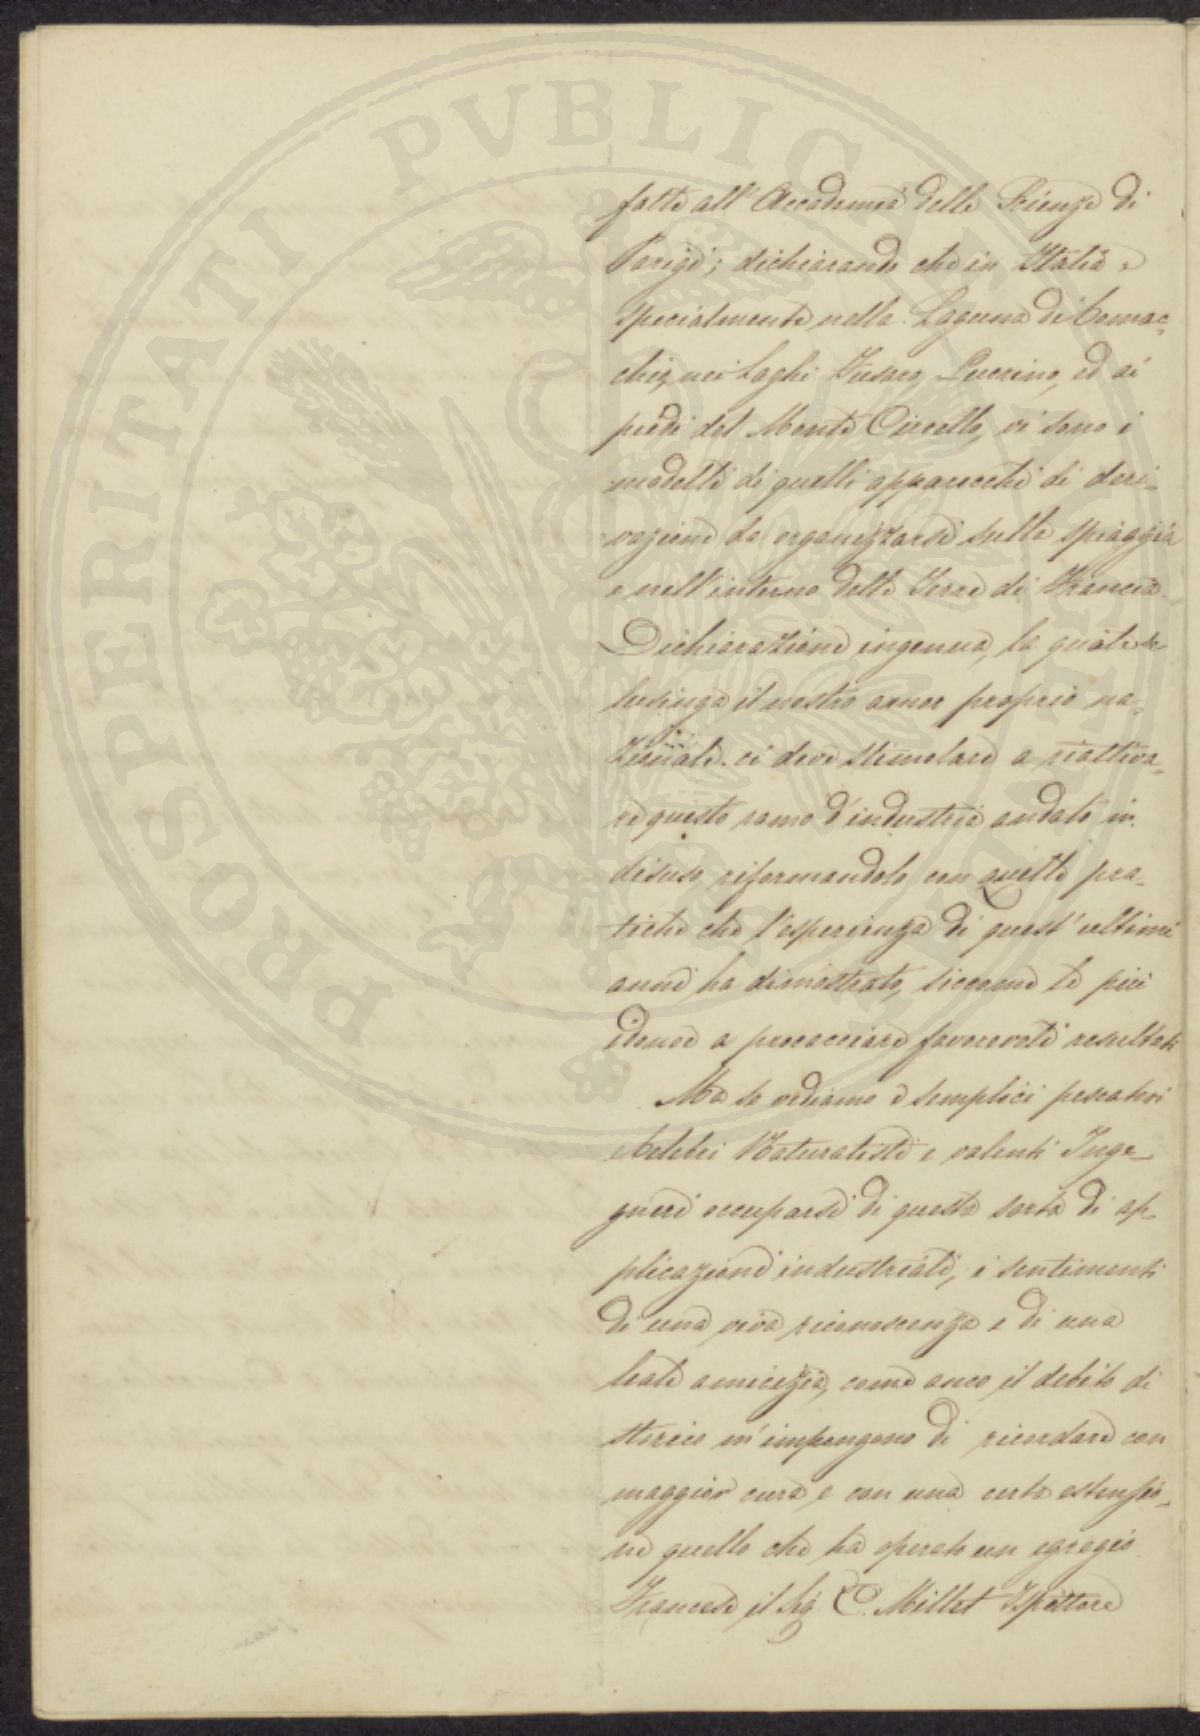 PROSPERITATI PVBLICAE
fatte all'Accademia delle Scienze di
Parigi; dichiarando che in Italia e
specialmente nella Laguna di Comac-
chio, nei Laghi Fusaro, Lucrino, ed ai
piedi del Monte Circello, vi sono i
modelli di quelli apparecchi di deri-
vazione da organizzarsi sulla spiaggia
e nell'interno delle Terre di Francia.
Dichiarazione ingenua, la quale se
lusinga il nostro amor proprio na-
zionale. ci deve stimolare a riattiva-
re questo ramo d'industria andato in
disuso, riformandolo con quelle pra-
tiche che l'esperienza di quest'ultimi
anni ha dimostrato, siccome le più
idonee a procacciare favorevoli resultati
Ma se vediamo e semplici pescatori
e celebri Naturalisti e valenti Inge-
gneri occuparsi di questa sorta di ap-
plicazioni industriali, i sentimenti
di una viva riconoscenza e di una
leale amicizia, come anco il debito di
storico m'impongono di ricordare con
maggior cura e con una certa estensio-
ne quello che ha operato un egregio
Francese il Sig. C. Millet Ispettore